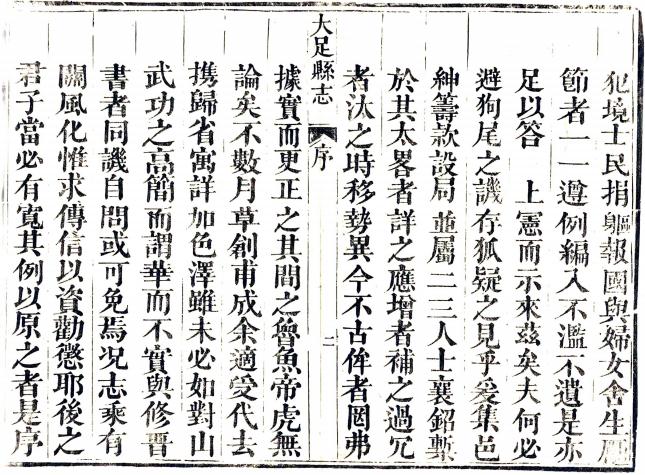 犯境士民捐軀報國與婦女舍生厲
節者一一遵例編入不濫不遺是亦
足以答　上憲而示來茲矣夫何必
避狗尾之譏存狐疑之見乎爰集邑
紳籌款設局並屬二三人士襄鉛槧
於其太畧者詳之應增者補之過冗
者汰之時移勢異今不古侔者罔弗
大足縣志　序　二
據實而更正之其間之魯魚帝虎無
論矣不數月草創甫成余適受代去
携歸省寓詳加色澤雖未必如對山
武功之高簡而謂華而不實與修晉
書者同譏自問或可免焉况志乘有
關風化惟求傳信以資勸懲耶後之
君子當必有寬其例以原之者是序